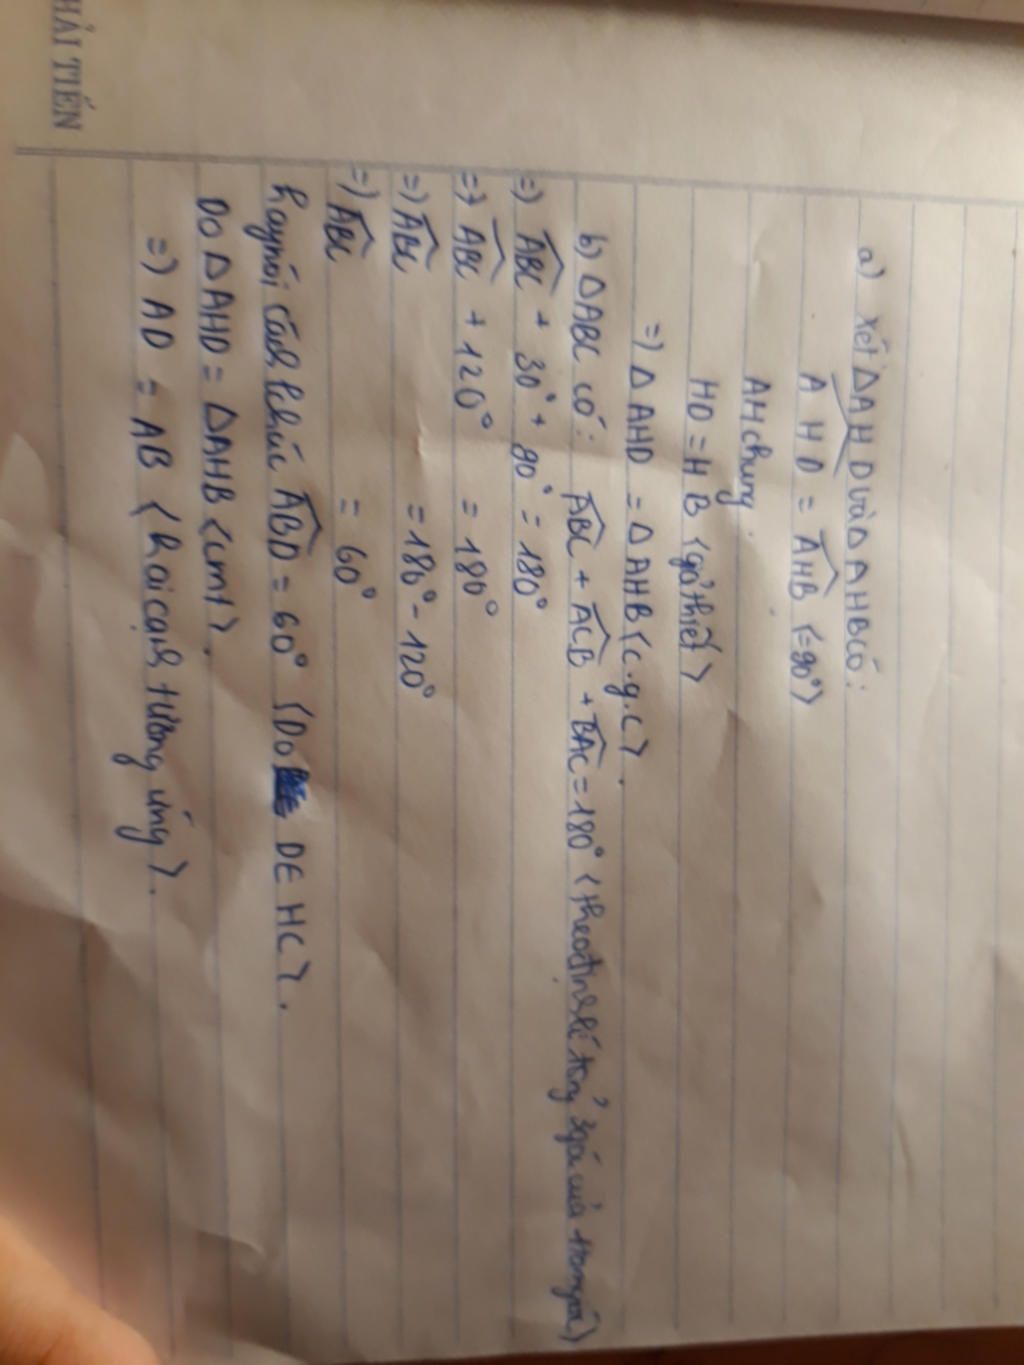 HẢI TIẾN
a) xét ΔAHD và ΔAHB có:
AHD = AHB (=90°)
AH chung.
HD = HB (giả thiết)
=) ΔAHD = ΔAHB (c.g.c).
b) ΔABC có: ABC + ACB + BAC = 180° (theo định lí tổng 3 góc của tam giác)
=) ABC + 30° + 90° = 180°
=) ABC + 120° = 180°
=) ABC = 180° - 120°
=) ABC = 60°
hay nói cách khác ABD = 60° (Do D∈HC).
Do ΔAHD = ΔAHB (cmt).
=) AD = AB (hai cạnh tương ứng).